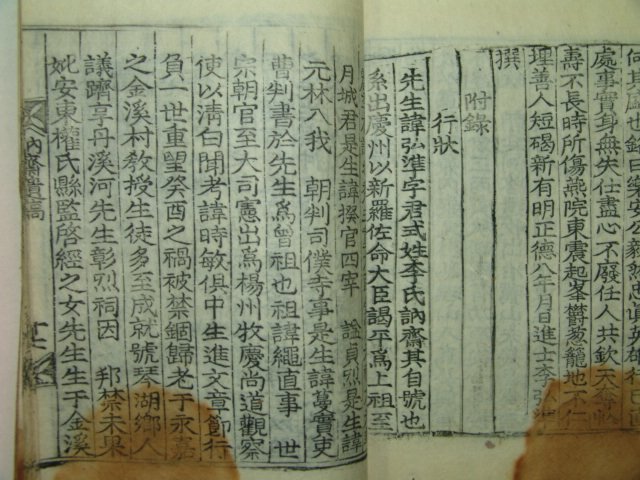 處事實身無失任盡心不廢任人共欽天奪
壽不長時所傷燕院東震起峯鬱葱籠地不仁
埋善人短碣新有明正德八年月日進士李弘
撰
附錄
行狀
先生諱弘準字君式姓李氏訥齋其自號也
系出慶州以新羅佐命大臣謁平爲上祖至
月城君是生諱揆官四宰 謚貞烈是生諱
元林入我 朝判司僕寺事是生諱蔓實吏
曹判書於先生爲曾祖也祖諱繩直事 世
宗朝官至大司憲出爲楊州牧慶尚道觀察
使以淸白聞考諱時敏俱中生進文章節行
負一世重望癸酉之禍被禁錮歸老于永嘉
之金溪村敎授生徒多至成就號琴湖鄉人
議躋享丹溪河先生彰烈祠因 邦禁未果
妣安東權氏縣監啓經之女先生生于金溪
訥齋遺稿